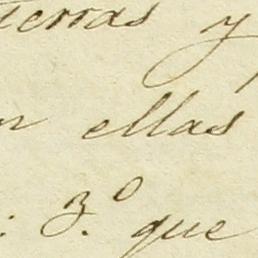 tierras y
en ellas
: 3.º que